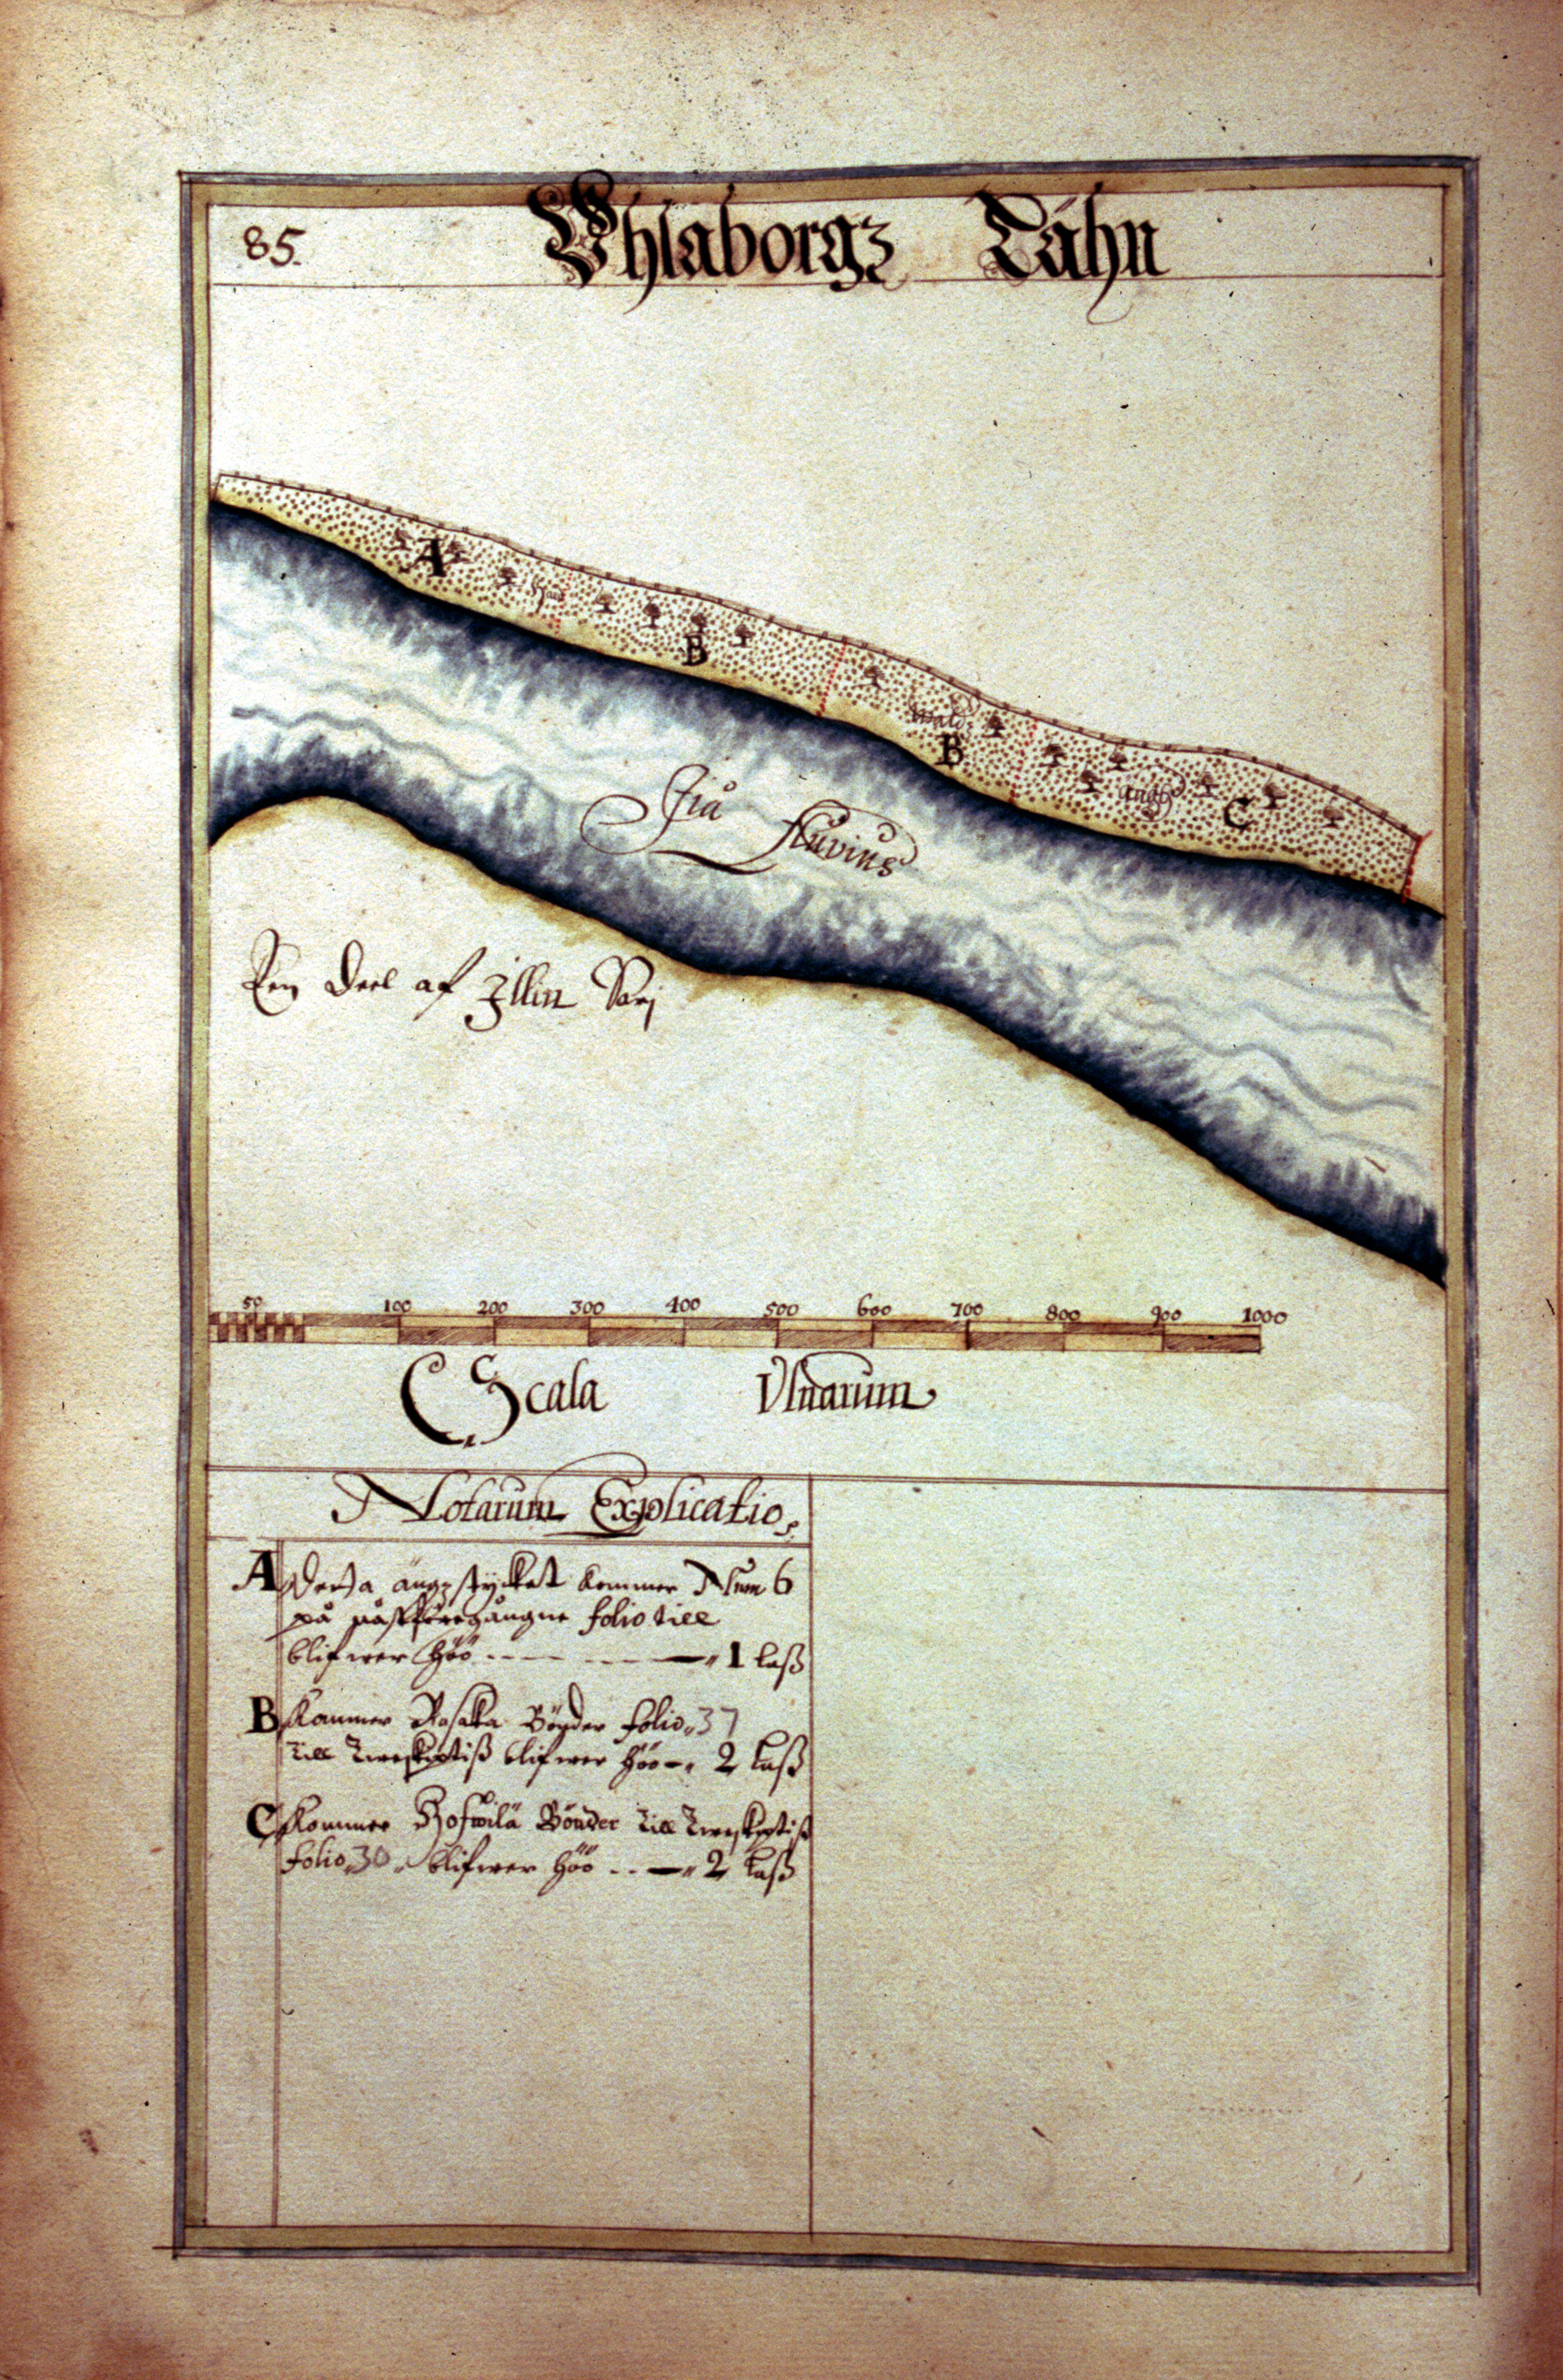 85.
Vhlaborgz Lähn
A
Hård
B
Walds
B
ängh
C
Jiå fluvius
Een deel af Illin Sarj
50 100 200 300 400 500 600 700 800 900 1000
Scala Vlnarum
Notarum Explicatio,
A Detta ängz stycket kommer Num 6
på näst föregångne folio till
blifwer höö 1 laß
B Kommer Rasakka Bönder folio 37
till Tweskiptiß blifwer höö 2 laß
C Kommer Bönder till Tweskiptiß
folio 30 blifwer höö 2 laß